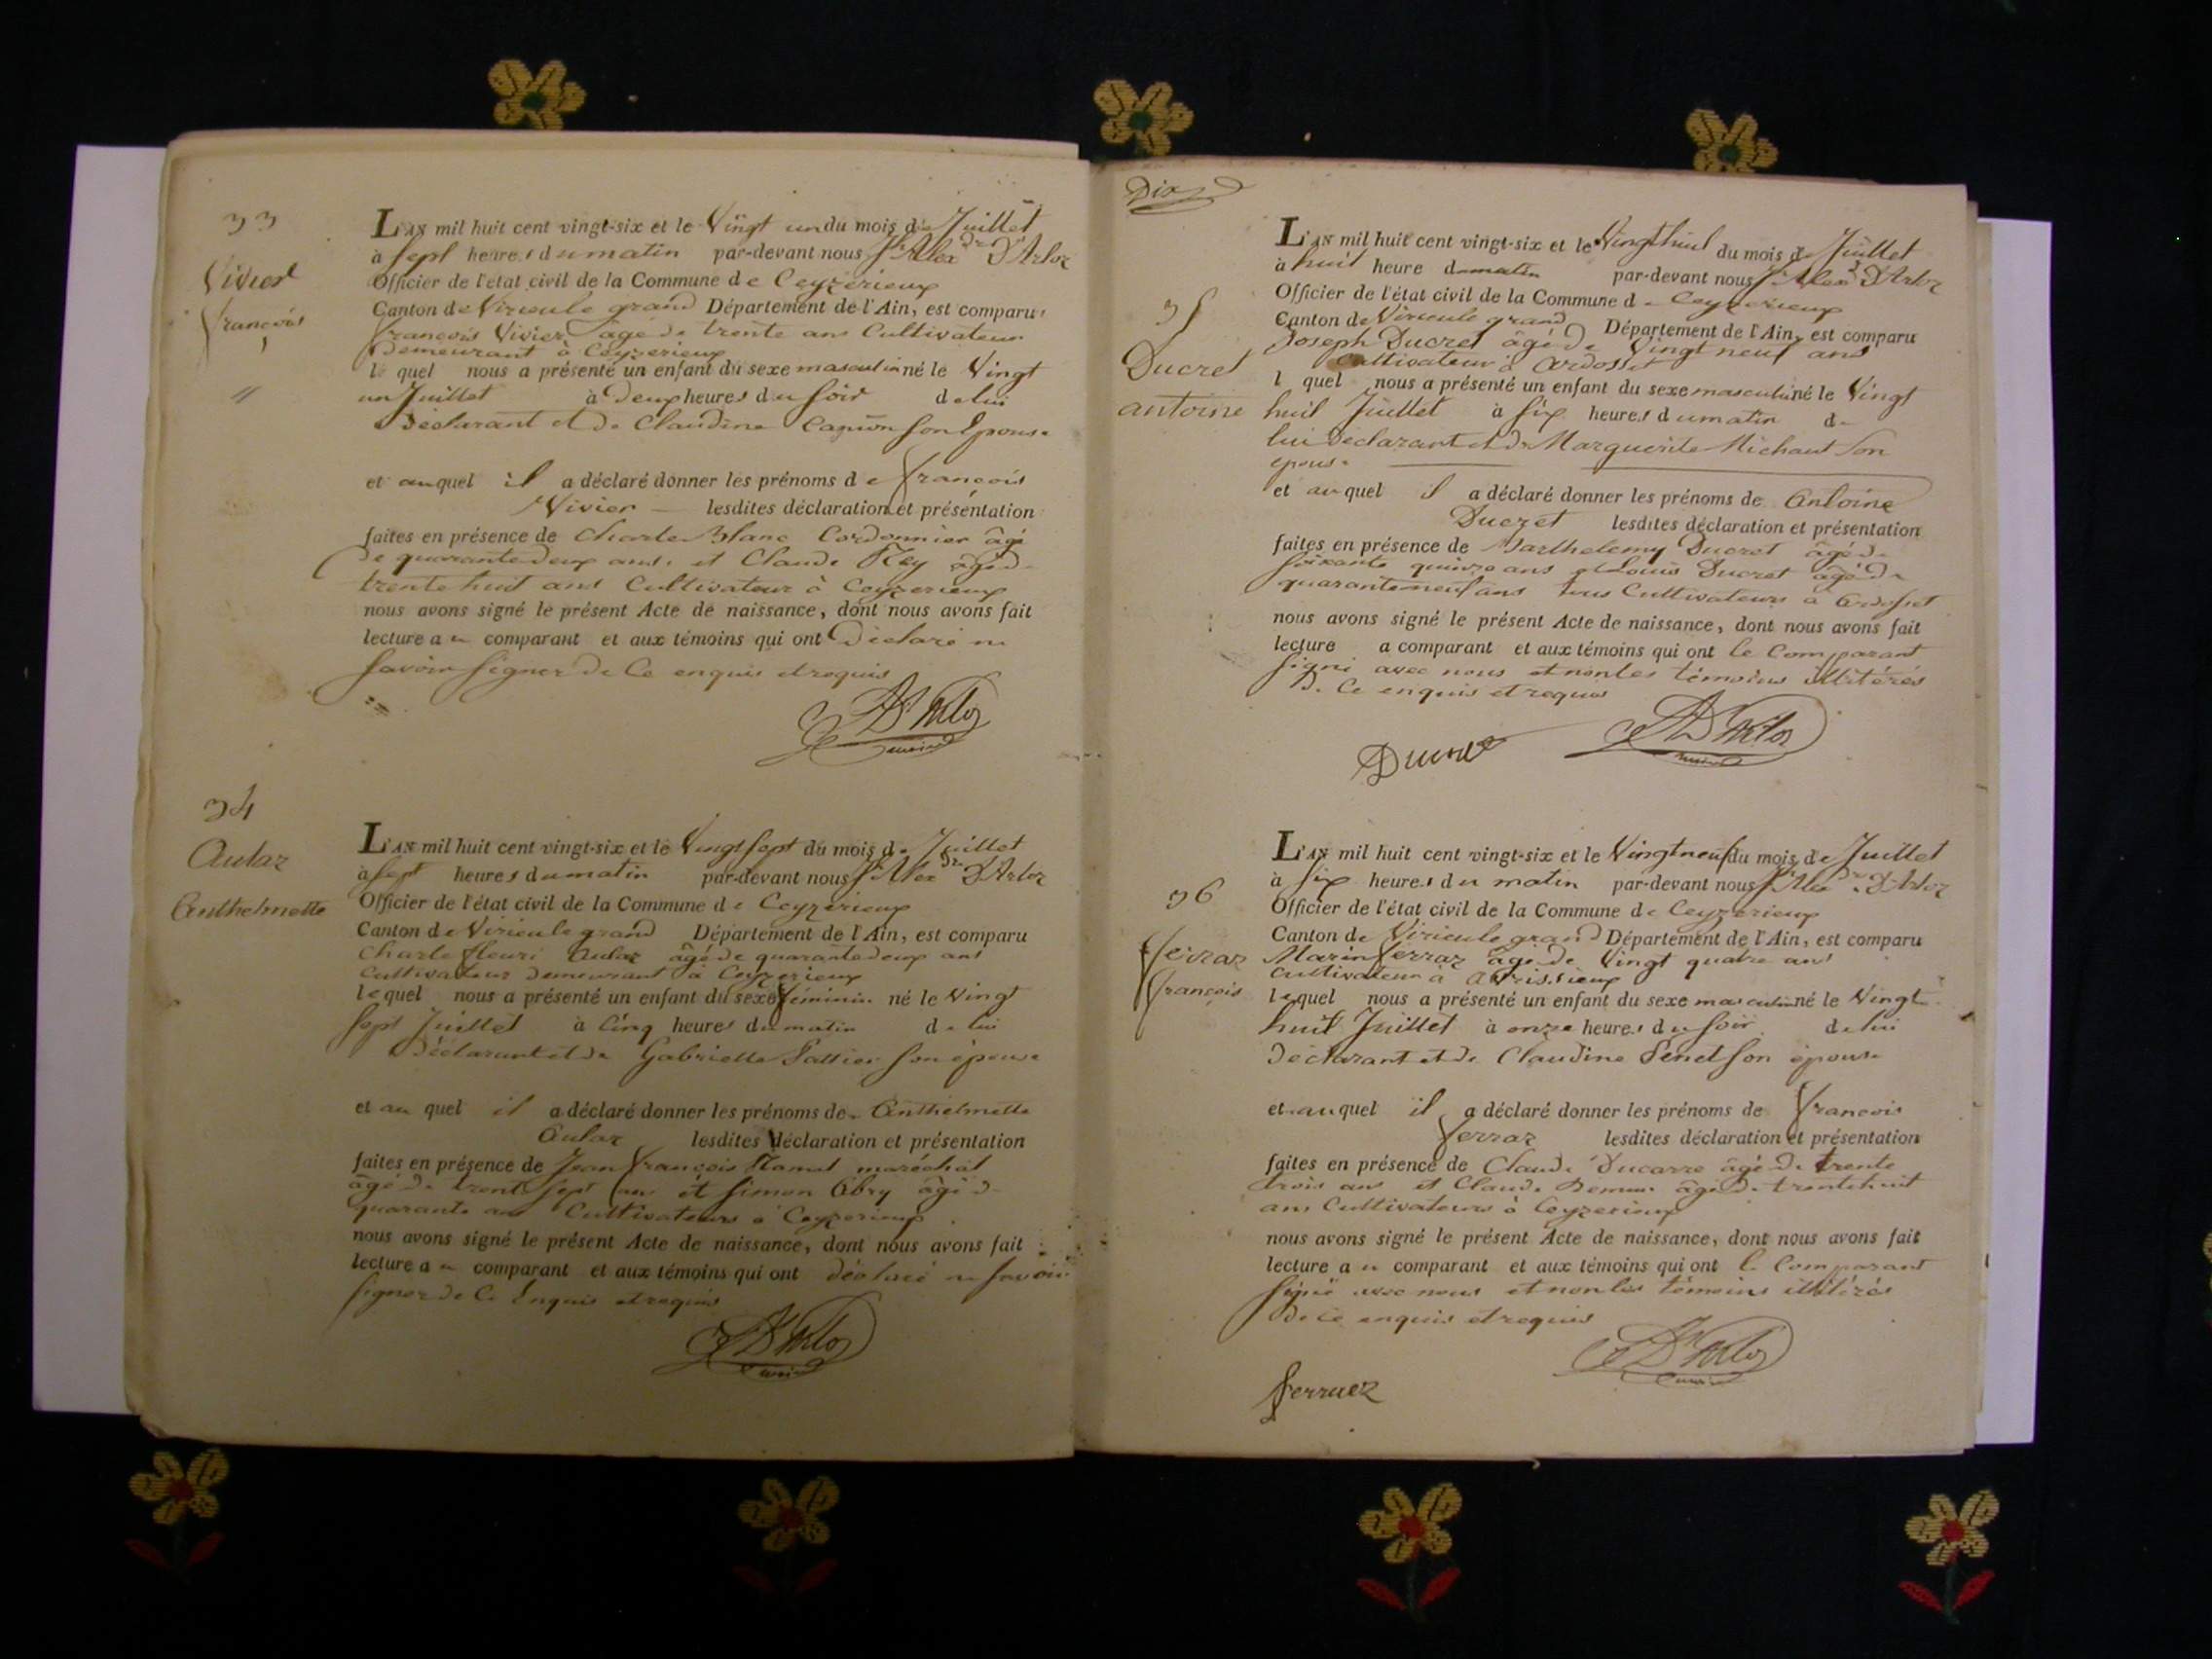 33
Vivier
françois
L'AN mil huit cent vingt-six et le Vingt un du mois de Juillet
à sept heures du matin par-devant nous Jh Alexdre D'Arloz
Officier de l'état civil de la Commune de Ceyzerieux
Canton de Virieule grand Département de l'Ain, est comparu
françois Vivier âgé de trente ans Cultivateur
Demeurant à Ceyzerieux
lequel nous a présenté un enfant du sexe masculin né le Vingt
un Juillet à Deux heures du soir de lui
Déclarant et de Claudine son Epouse
et auquel il a déclaré donner les prénoms de françois
Vivier lesdites déclaration et présentation
faites en présence de Charle Blanc Cordonnier âgé
de quarante deux ans et Claude Rey âgé de
trente huit ans Cultivateur à Ceyzerieux
nous avons signé le présent Acte de naissance, dont nous avons fait
lecture au comparant et aux témoins qui ont Déclaré ne
savoir signer de Ce enquis et requis
34
Aular
Anthelmette
L'AN mil huit cent vingt-six et le Vingt sept du mois de Juillet
à sept heures du matin par-devant nous Jh Alexdre D'Arloz
Officier de l'état civil de la Commune de Ceyzerieux
Canton de Virieule grand Département de l'Ain, est comparu
Charle fleuri Aular âgé de quarante deux ans
Cultivateur demeurant à Ceyzerieux
lequel nous a présenté un enfant du sexe féminin né le Vingt
sept Juillet à Cinq heures du matin de lui
Déclarant et de Gabrielle son épouse
et au quel il a déclaré donner les prénoms de Anthelmette
Aular lesdites déclaration et présentation
faites en présence de Jean françois maréchal
âgé de trente sept ans et Simon Abry âgé de
quarante ans Cultivateurs à Ceyzerieux
nous avons signé le présent Acte de naissance, dont nous avons fait
lecture au comparant et aux témoins qui ont déclaré ne savoir
signer de Ce Enquis et requis
Dix
35
Ducret
antoine
L'AN mil huit cent vingt-six et le Vingt huit du mois de Juillet
à huit heure du matin par-devant nous Jh Alexd D'Arloz
Officier de l'état civil de la Commune de Ceyzerieux
Canton de Virieule grand Département de l'Ain, est comparu
Joseph Ducret âgé de Vingt neuf ans
Cultivateur à Ardosset
l quel nous a présenté un enfant du sexe masculin né le Vingt
huit Juillet à six heures du matin de
lui Déclarant et de Marguerite Michaut son
epouse
et au quel il a déclaré donner les prénoms de Antoine
Ducret lesdites déclaration et présentation
faites en présence de Barthelemy Ducret âgé de
soixante quinze ans et Louis Ducret âgé de
quarante neuf ans tous Cultivateurs à Ardosset
nous avons signé le présent Acte de naissance, dont nous avons fait
lecture a comparant et aux témoins qui ont le Comparant
signé avec nous et non les témoins illitérés
De Ce enquis et requis
Ducret
36
ferrar
françois
L'AN mil huit cent vingt-six et le Vingt neuf du mois de Juillet
à six heures du matin par-devant nous Jh Alexdre D'Arloz
Officier de l'état civil de la Commune de Ceyzerieux
Canton de Virieule grand Département de l'Ain, est comparu
Marin ferrar âgé de Vingt quatre ans
Cultivateur à Avrissieux
lequel nous a présenté un enfant du sexe masculin né le Vingt
huit Juillet à onze heures du soir de lui
Déclarant et de Claudine son épouse
et auquel il a déclaré donner les prénoms de françois
ferrar lesdites déclaration et présentation
faites en présence de Claude Ducarre âgé de trente
trois ans et Claude âgé de trente huit
ans Cultivateurs à Ceyzerieux
nous avons signé le présent Acte de naissance, dont nous avons fait
lecture au comparant et aux témoins qui ont le Comparant
signé avec nous et non les témoins illitérés
De Ce enquis et requis
ferraez